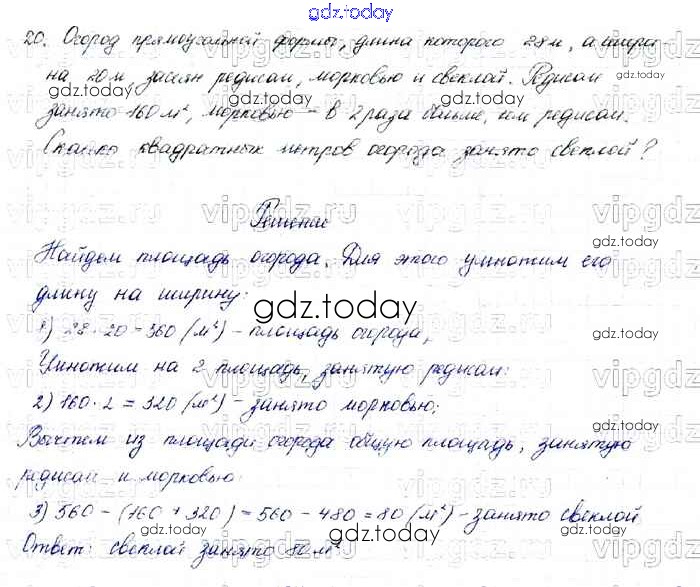 gdz.today
20. Огород прямоугольной формы, длина которого 28 м, а шири
на 20 м засеян редисом, морковью и свеклой. Редисом
занято 160 м², морковью – в 2 раза больше, чем редисом.
Сколько квадратных метров огорода занято свеклой?
Решение
Найдем площадь огорода. Для этого умножим его
длину на ширину:
gdz.today
1) 28 · 20 = 560 (м²) – площадь огорода,
Умножим на 2 площадь, занятую редисом:
2) 160 · 2 = 320 (м²) – занято морковью;
Вычтем из площади огорода общую площадь, занятую
редисом и морковью:
3) 560 – (160 + 320) = 560 – 480 = 80 (м²) – занято свеклой
Ответ: свеклой занято 80 м²